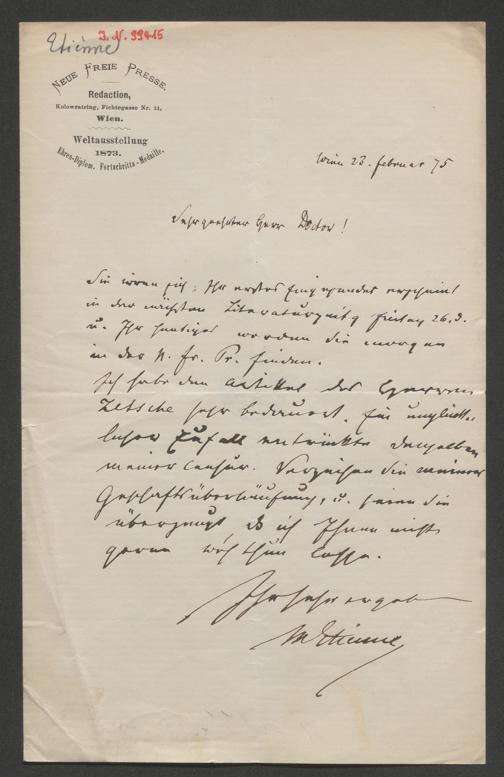 Etienne
I. N. 99415
NEUE FREIE PRESSE.
Redaction,
Kolowratring, Fichtegasse Nr. 11,
Wien.
Weltausstellung
1873.
Ehren-Diplom. Fortschritts-Medaille.
Wien 23. Februar 75
Sehr geehrter Herr Doctor!
Sie irren sich: Ihr erstes Eingesandet erscheint
in der nächsten Literaturzeitg Freitag 26. d.
u. Ihr heutiges werden Sie morgen
in der N. Fr. Pr. finden.
Ich habe den Artikel des Herrn
Zetsche sehr bedauert. Ein unglück-
licher Zufall entrückte denselben
meiner Censur. Verzeihen Sie meiner
Geschäftsüberhäufung, u. seien Sie
überzeugt, daß ich Ihnen nicht
gerne weh thun lasse.
Ihr sehr ergeb
MEtienne